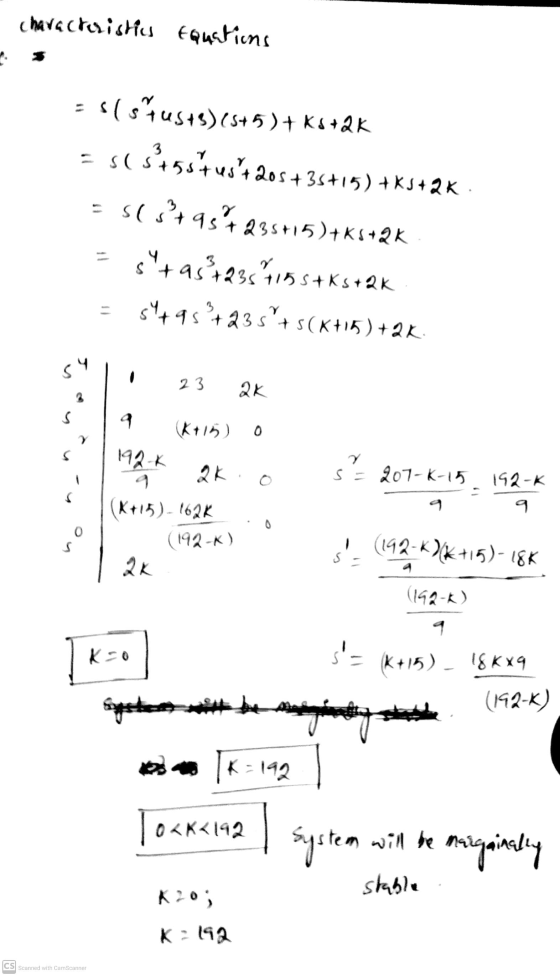 characteristics Equations
= s(s²+4s+3)(s+5)+Ks+2K
= s(s³+5s²+4s²+20s+3s+15)+Ks+2K.
= s(s³+9s²+23s+15)+Ks+2K
= s⁴+9s³+23s²+15s+Ks+2K
= s⁴+9s³+23s²+s(K+15)+2K.
s⁴ | 1 23 2K
s³ | 9 (K+15) 0
s² | (192-K)/9 2K 0
s¹ | (K+15) - 162K/(192-K) 0
s⁰ | 2K
s² = (207-K-15)/9 = (192-K)/9
s¹ = (((192-K)/9)(K+15)-18K)/((192-K)/9)
s¹ = (K+15) - (18K×9)/(192-K)
K=0
System will be marginally stable.
K=192
0<K<192
System will be margainally
stable.
K=0;
K=192
CS Scanned with CamScanner